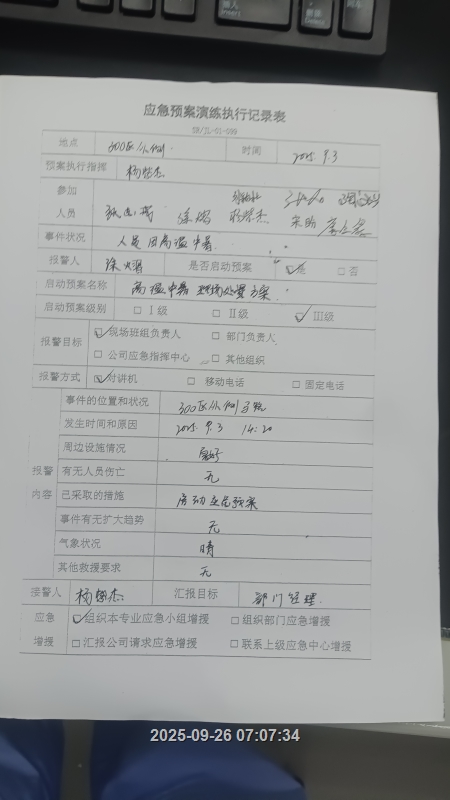 应急预案演练执行记录表
SH/JL-01-009
地点 300区 时间 2025.9.3
预案执行指挥
参加
人员
事件状况 人员因高温中暑
报警人 是否启动预案 ☑是 □否
启动预案名称 高温中暑现场处置方案
启动预案级别 □Ⅰ级 □Ⅱ级 ☑Ⅲ级
报警目标 ☑现场班组负责人 □部门负责人
□公司应急指挥中心 □其他组织
报警方式 ☑对讲机 □移动电话 □固定电话
报警
内容
事件的位置和状况 300区
发生时间和原因 2025.9.3 14:20
周边设施情况 良好
有无人员伤亡 无
已采取的措施 启动应急预案
事件有无扩大趋势 无
气象状况 晴
其他救援要求 无
接警人 汇报目标 部门经理
应急
增援
☑组织本专业应急小组增援 □组织部门应急增援
□汇报公司请求应急增援 □联系上级应急中心增援
2025-09-26 07:07:34